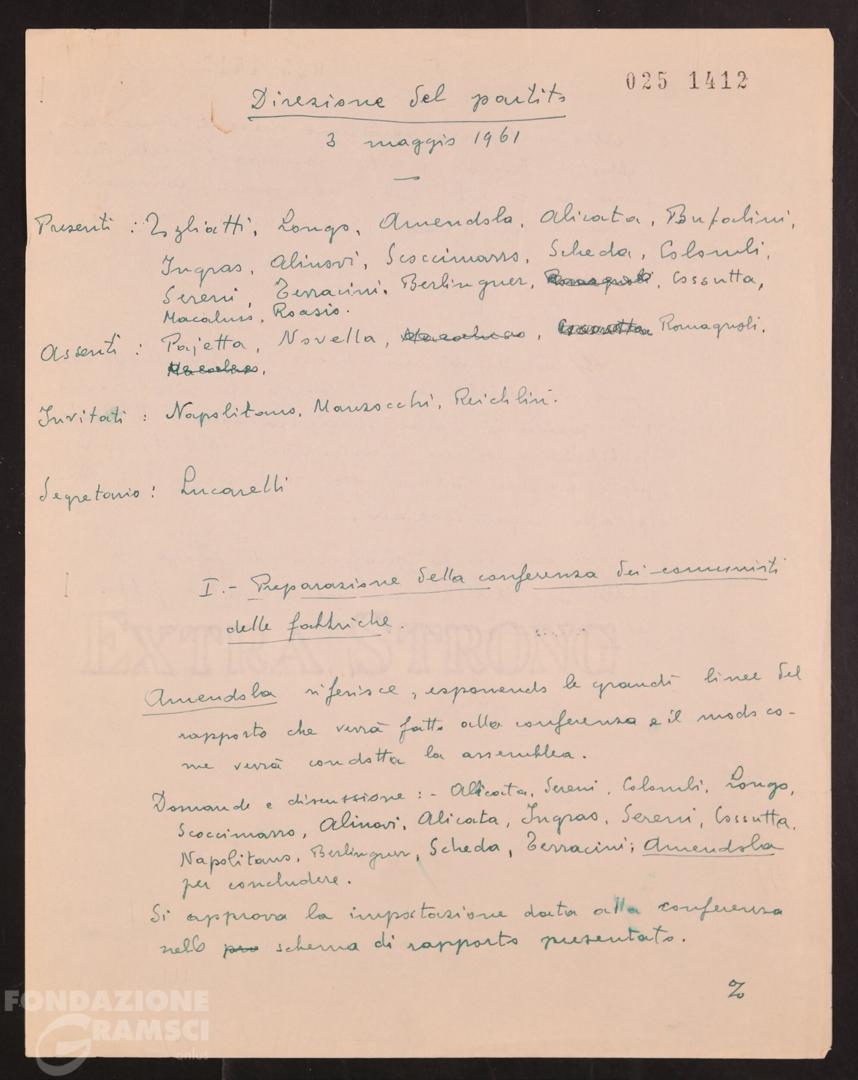 025 1412
Direzione del partito
3 maggio 1961
Presenti : Togliatti, Longo, Amendola, Alicata, Bufalini,
Ingrao, Alinovi, Scoccimarro, Scheda, Colombi,
Sereni, Terracini, Berlinguer, Romagnoli, Cossutta,
Macaluso, Roasio.
Assenti : Pajetta, Novella, Macaluso, Cossutta Romagnoli,
Macaluso,
Invitati : Napolitano, Manzocchi, Reichlin.
Segretario : Lucarelli
I.- Preparazione della conferenza dei comunisti
delle fabbriche.
EXTRA STRONG
Amendola riferisce, esponendo le grandi linee del
rapporto che verrà fatto alla conferenza e il modo co-
me verrà condotta la assemblea.
Domande e discussione :- Alicata, Sereni, Colombi, Longo,
Scoccimarro, Alinovi, Alicata, Ingrao, Sereni, Cossutta,
Napolitano, Berlinguer, Scheda, Terracini; Amendola
per concludere.
Si approva la impostazione data alla conferenza
nello pro schema di rapporto presentato.
FONDAZIONE
GRAMSCI
onlus